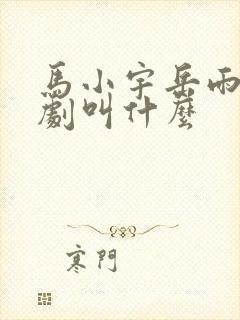 馬小宇岳雨
劇叫什麼
寒門